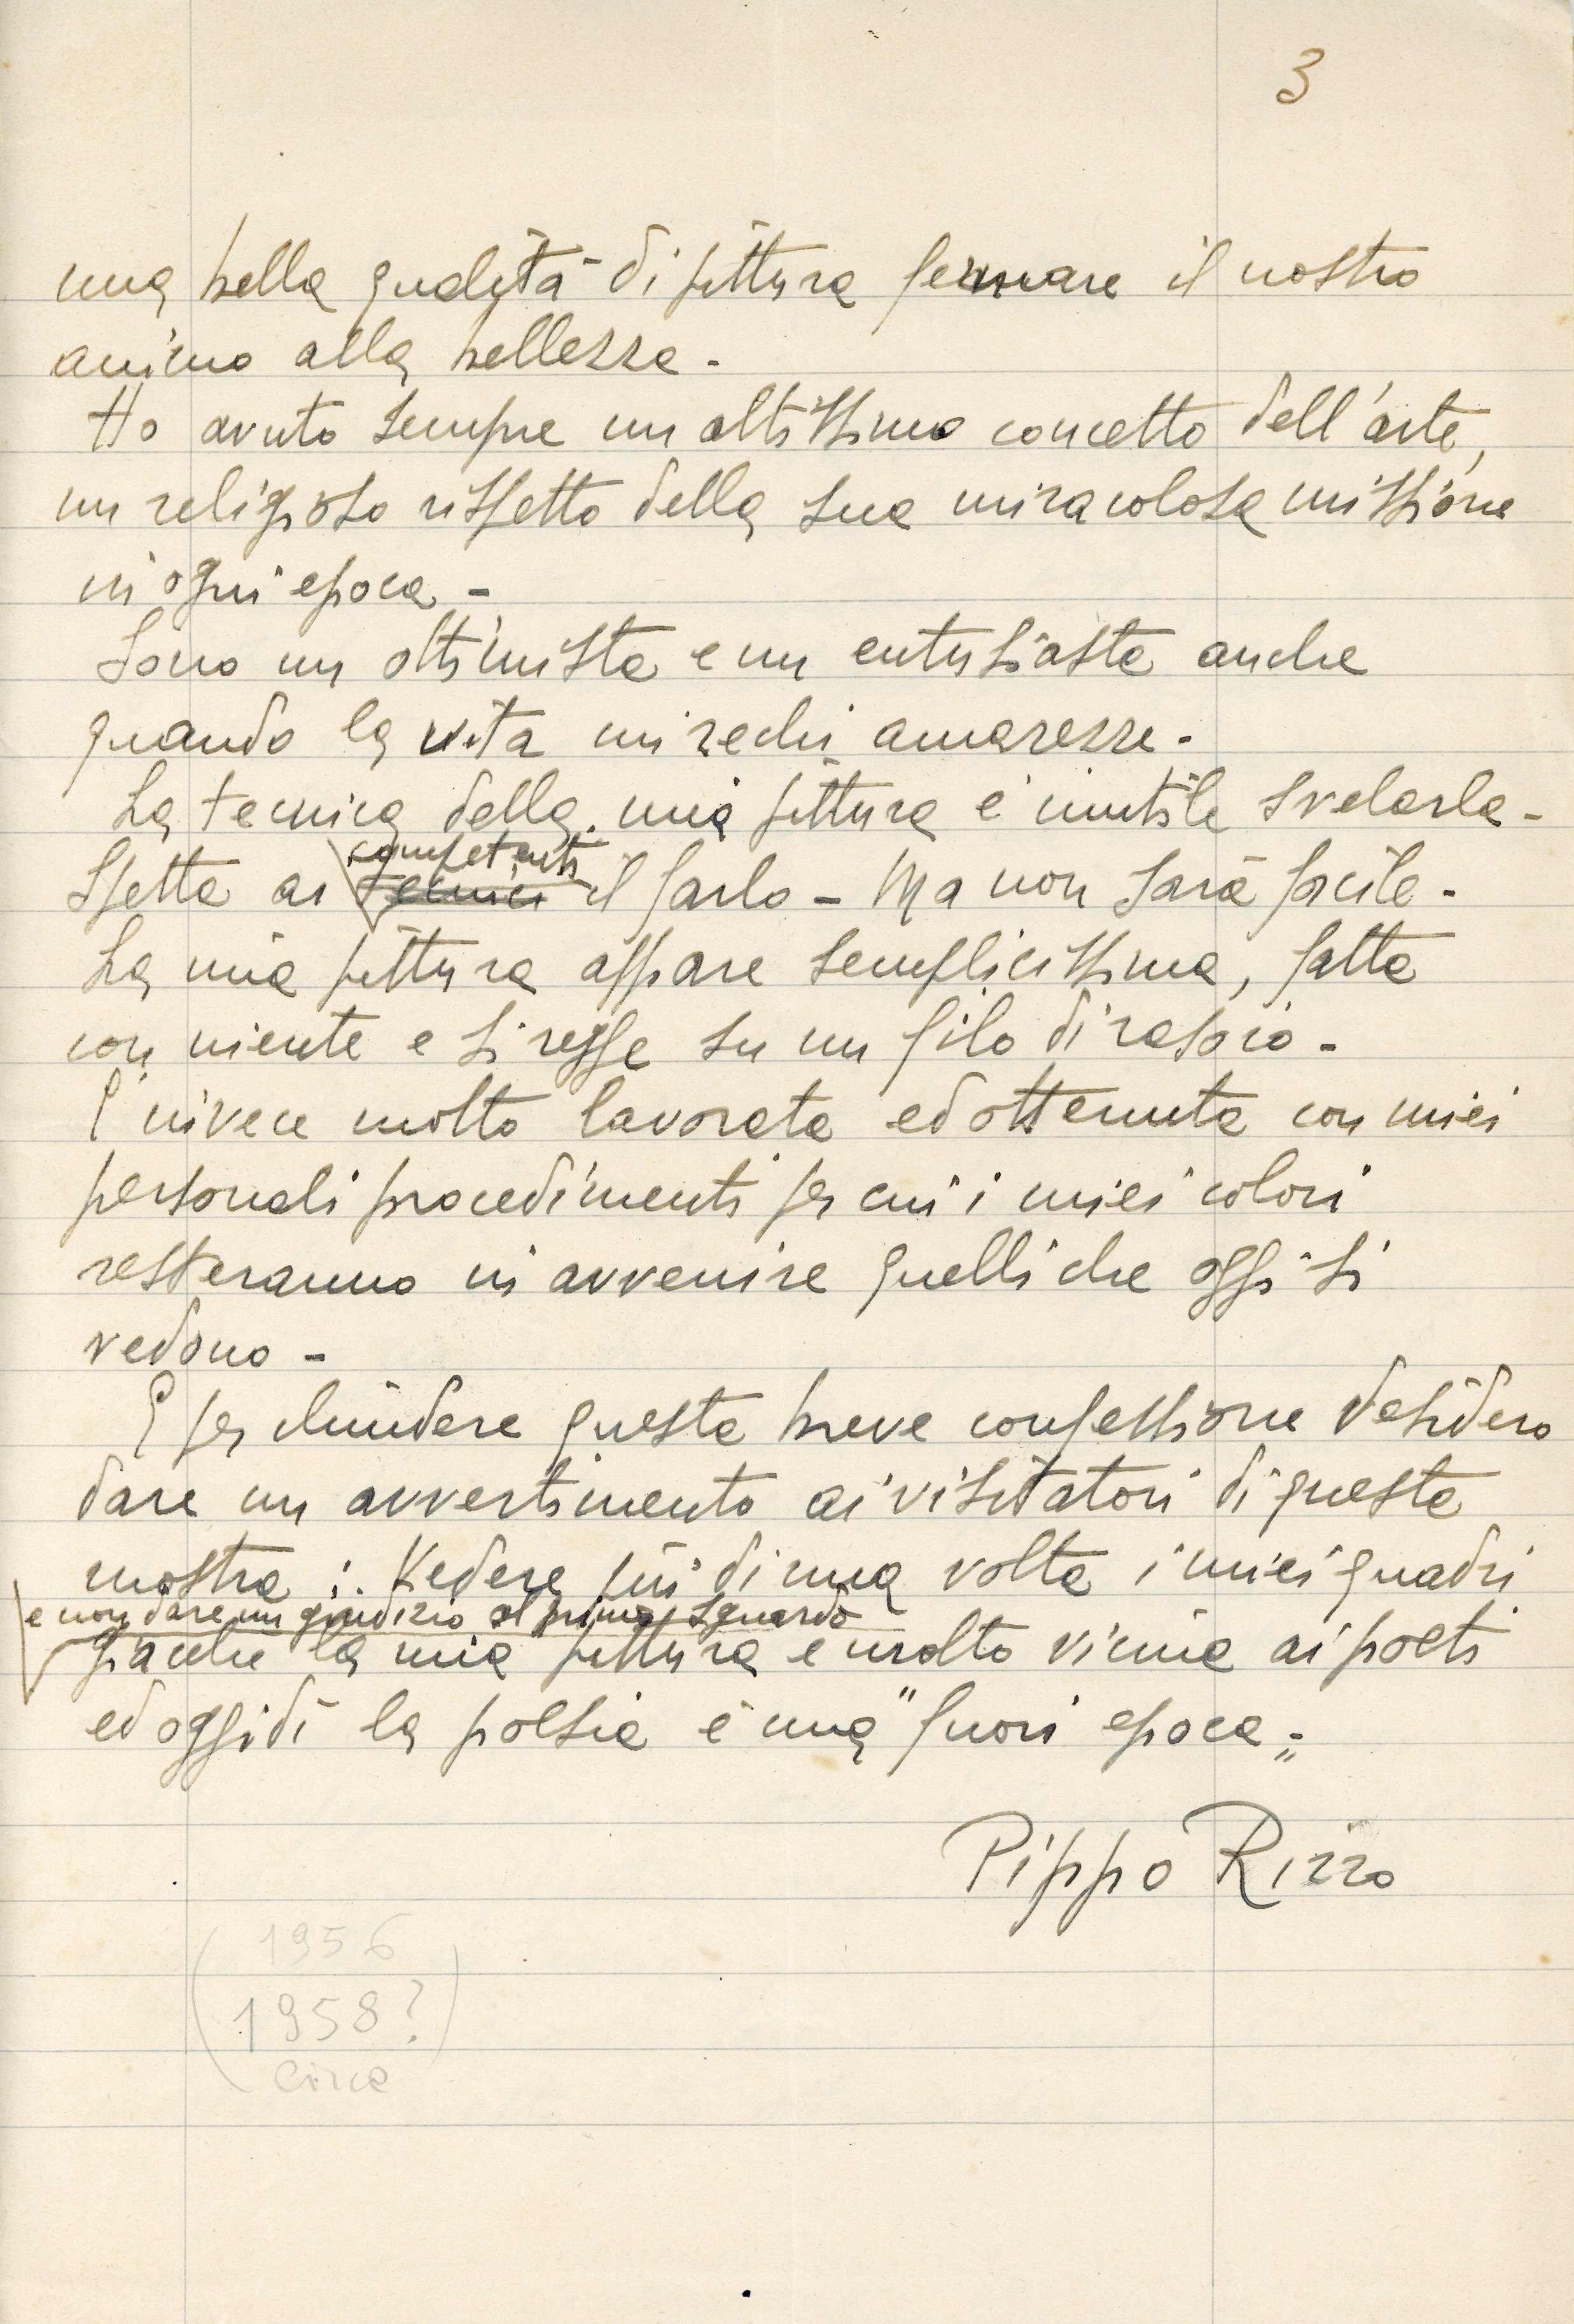 3
una bella qualità di pittura fermare il nostro
animo alla bellezza -
Ho avuto sempre un altissimo concetto dell'arte,
un religioso rispetto della sua miracolosa missione
in ogni epoca -
Sono un ottimista e un entusiasta anche
quando la vita mi rechi amarezze -
La tecnica della mia pittura è inutile svelarla -
competenti
Spetta ai tecnici il farlo - Ma non sarà facile -
La mia pittura appare semplicissima, fatta
con niente e si regge su un filo di rasoio -
È invece molto lavorata ed ottenuta con miei
personali procedimenti per cui i miei colori
resteranno in avvenire quelli che oggi si
vedono -
E per chiudere questa breve confessione desidero
dare un avvertimento ai visitatori di questa
mostra : Vedere più di una volta i miei quadri
e non dare un giudizio al primo sguardo
giacché la mia pittura è molto vicina ai poeti
ed oggidì la poesia è una "fuori epoca" -
Pippo Rizzo
(1956
1958?
circa)